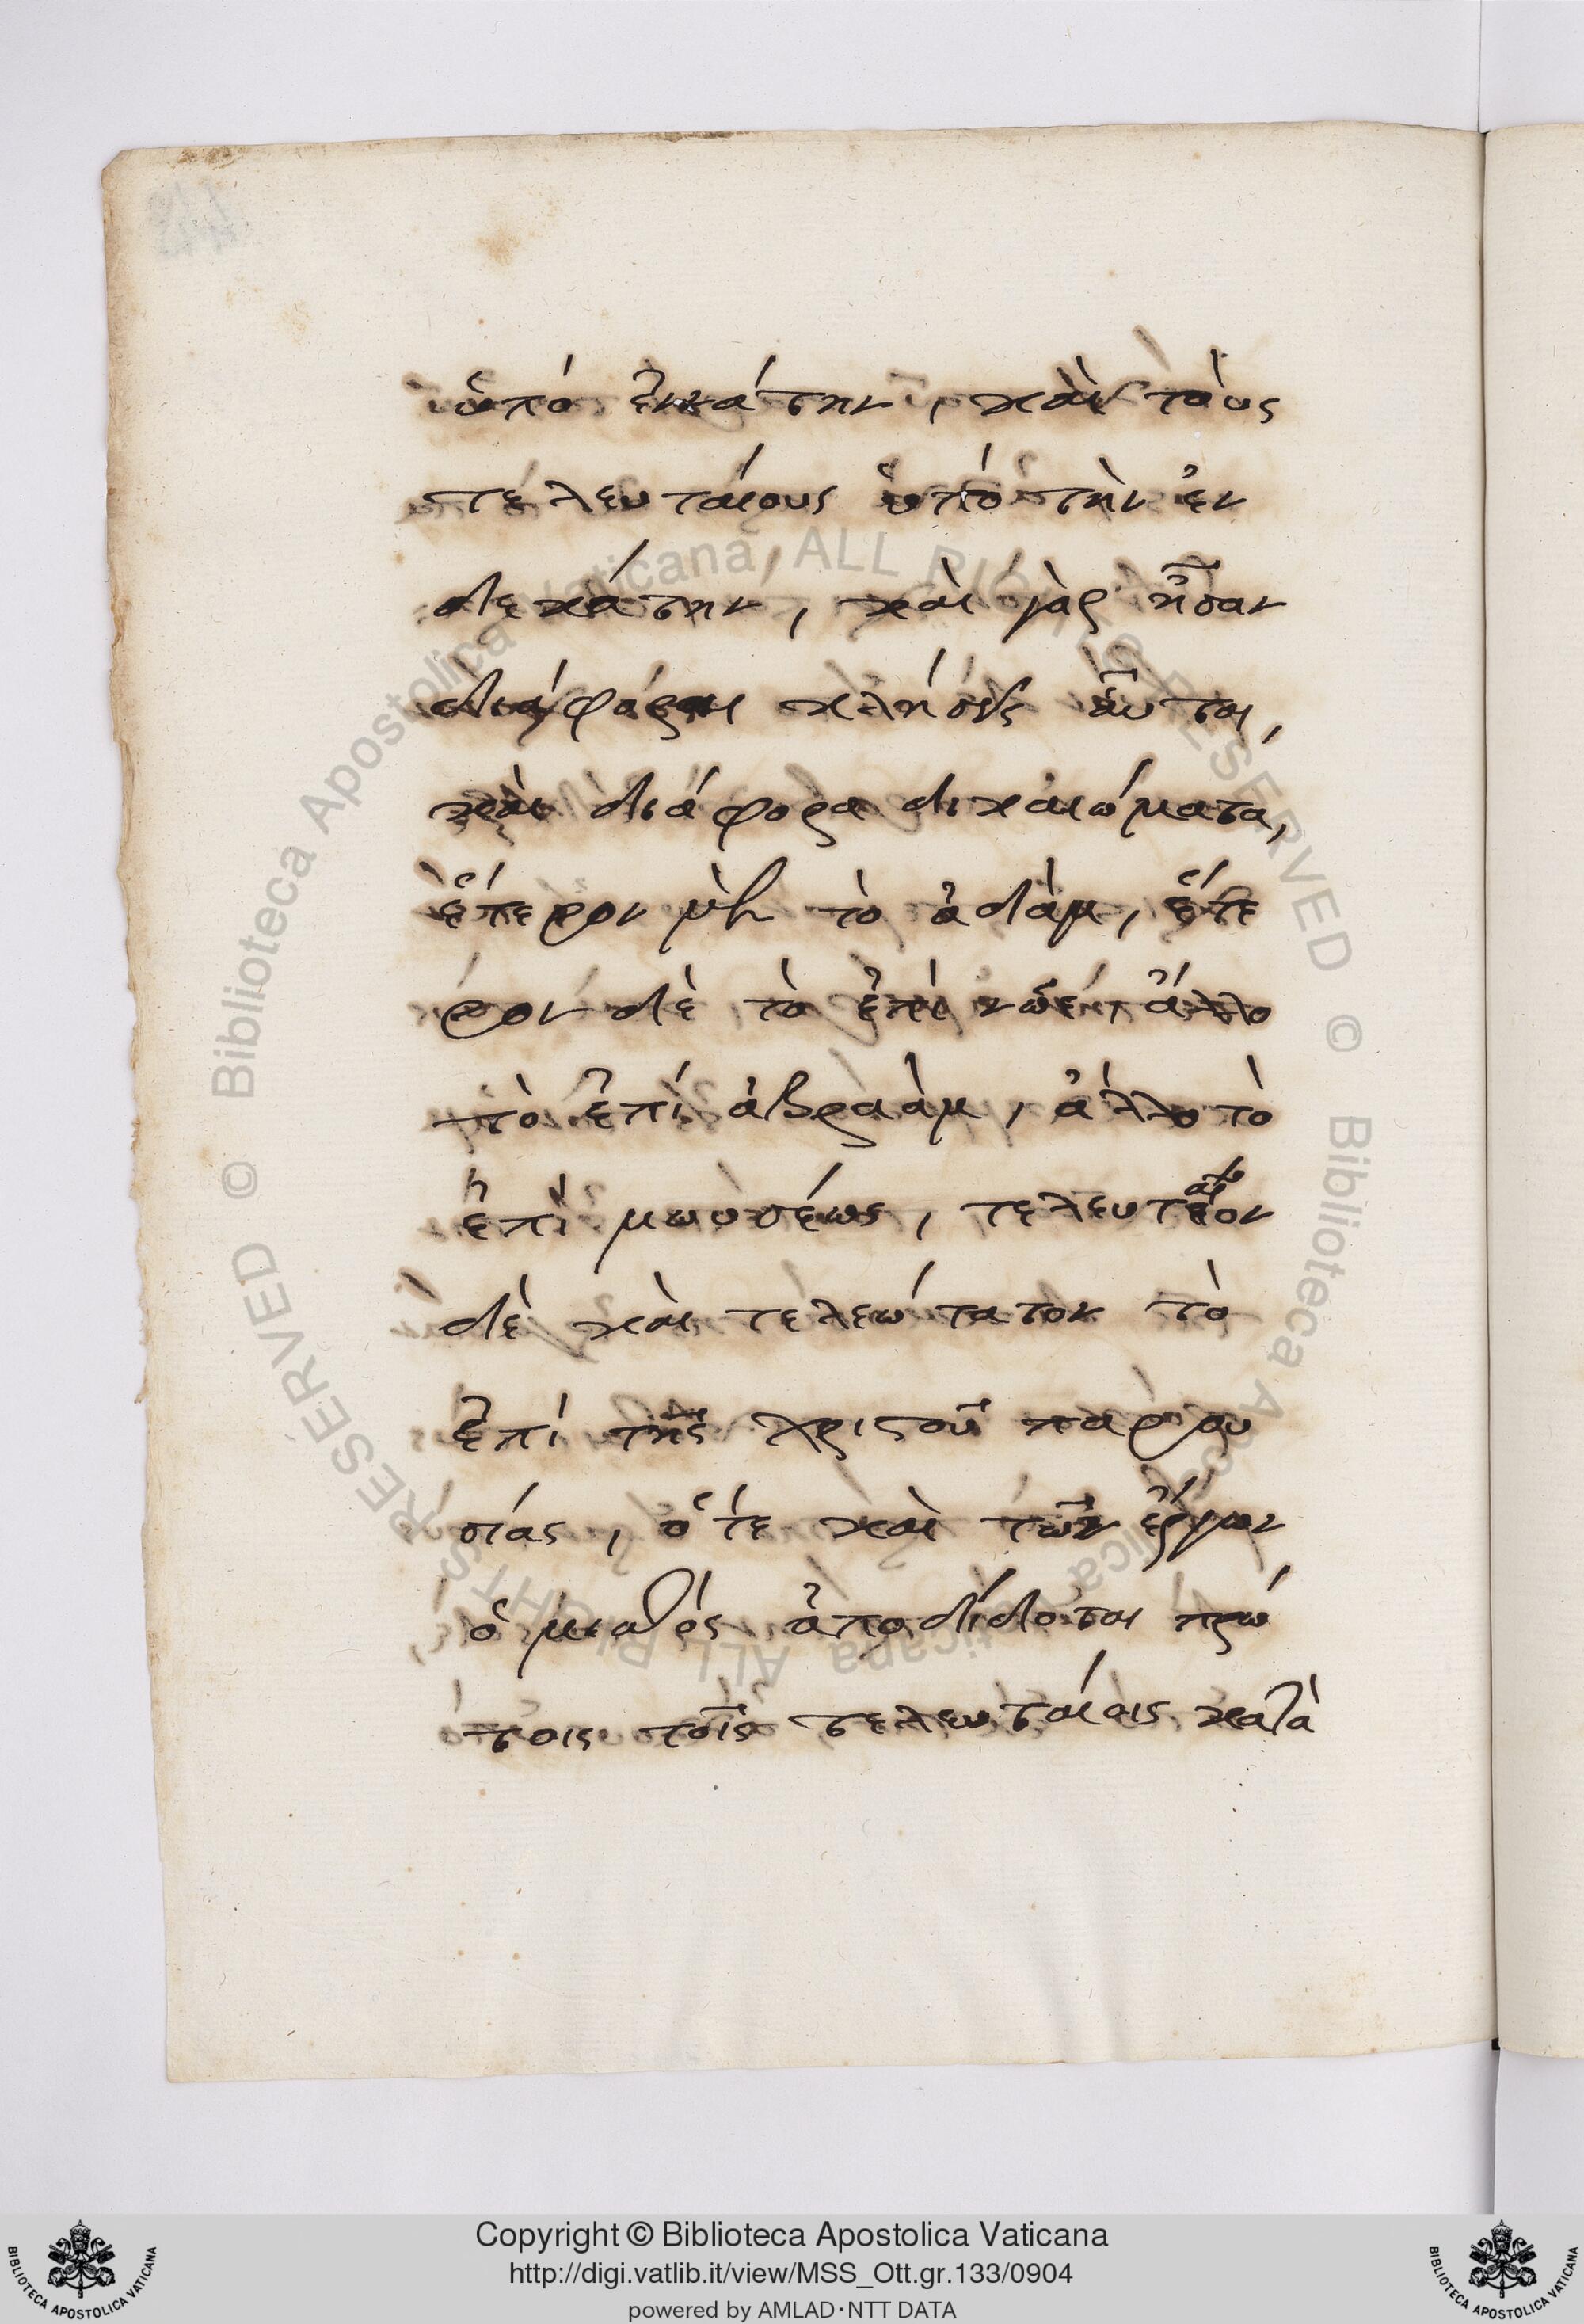 ὑπὸ ἐννάτην, καὶ τοὺς
τελευταίους ὑπὸ τὴν ἑν
δεκάτην, καὶ γὰρ ἦσαν
διάφοροι κλήσεις αὗται,
καὶ διάφορα δικαιώματα,
ἕτερον μὲν τὸ ἀδὰμ, ἕτε
ρον δὲ τὸ ἐπὶ νῶε, ἄλλο
τὸ ἐπὶ ἀβραὰμ, ἄλλο τὸ
ἐπὶ μωυσέως, τελευταῖον
δὲ καὶ τελεώτατον τὸ
ἐπὶ τῆς χριστοῦ παρου
σίας, ὅτε καὶ τῶν ἔργων
ὁ μισθὸς ἀποδίδοται πρώ
τοις τοῖς τελευταίοις κατὰ
Biblioteca Apostolica Vaticana ALL RIGHTS RESERVED ©
Biblioteca Apostolica Vaticana ALL RIGHTS RESERVED ©
Copyright © Biblioteca Apostolica Vaticana
http://digi.vatlib.it/view/MSS_Ott.gr.133/0904
powered by AMLAD·NTT DATA
BIBLIOTECA APOSTOLICA VATICANA
BIBLIOTECA APOSTOLICA VATICANA